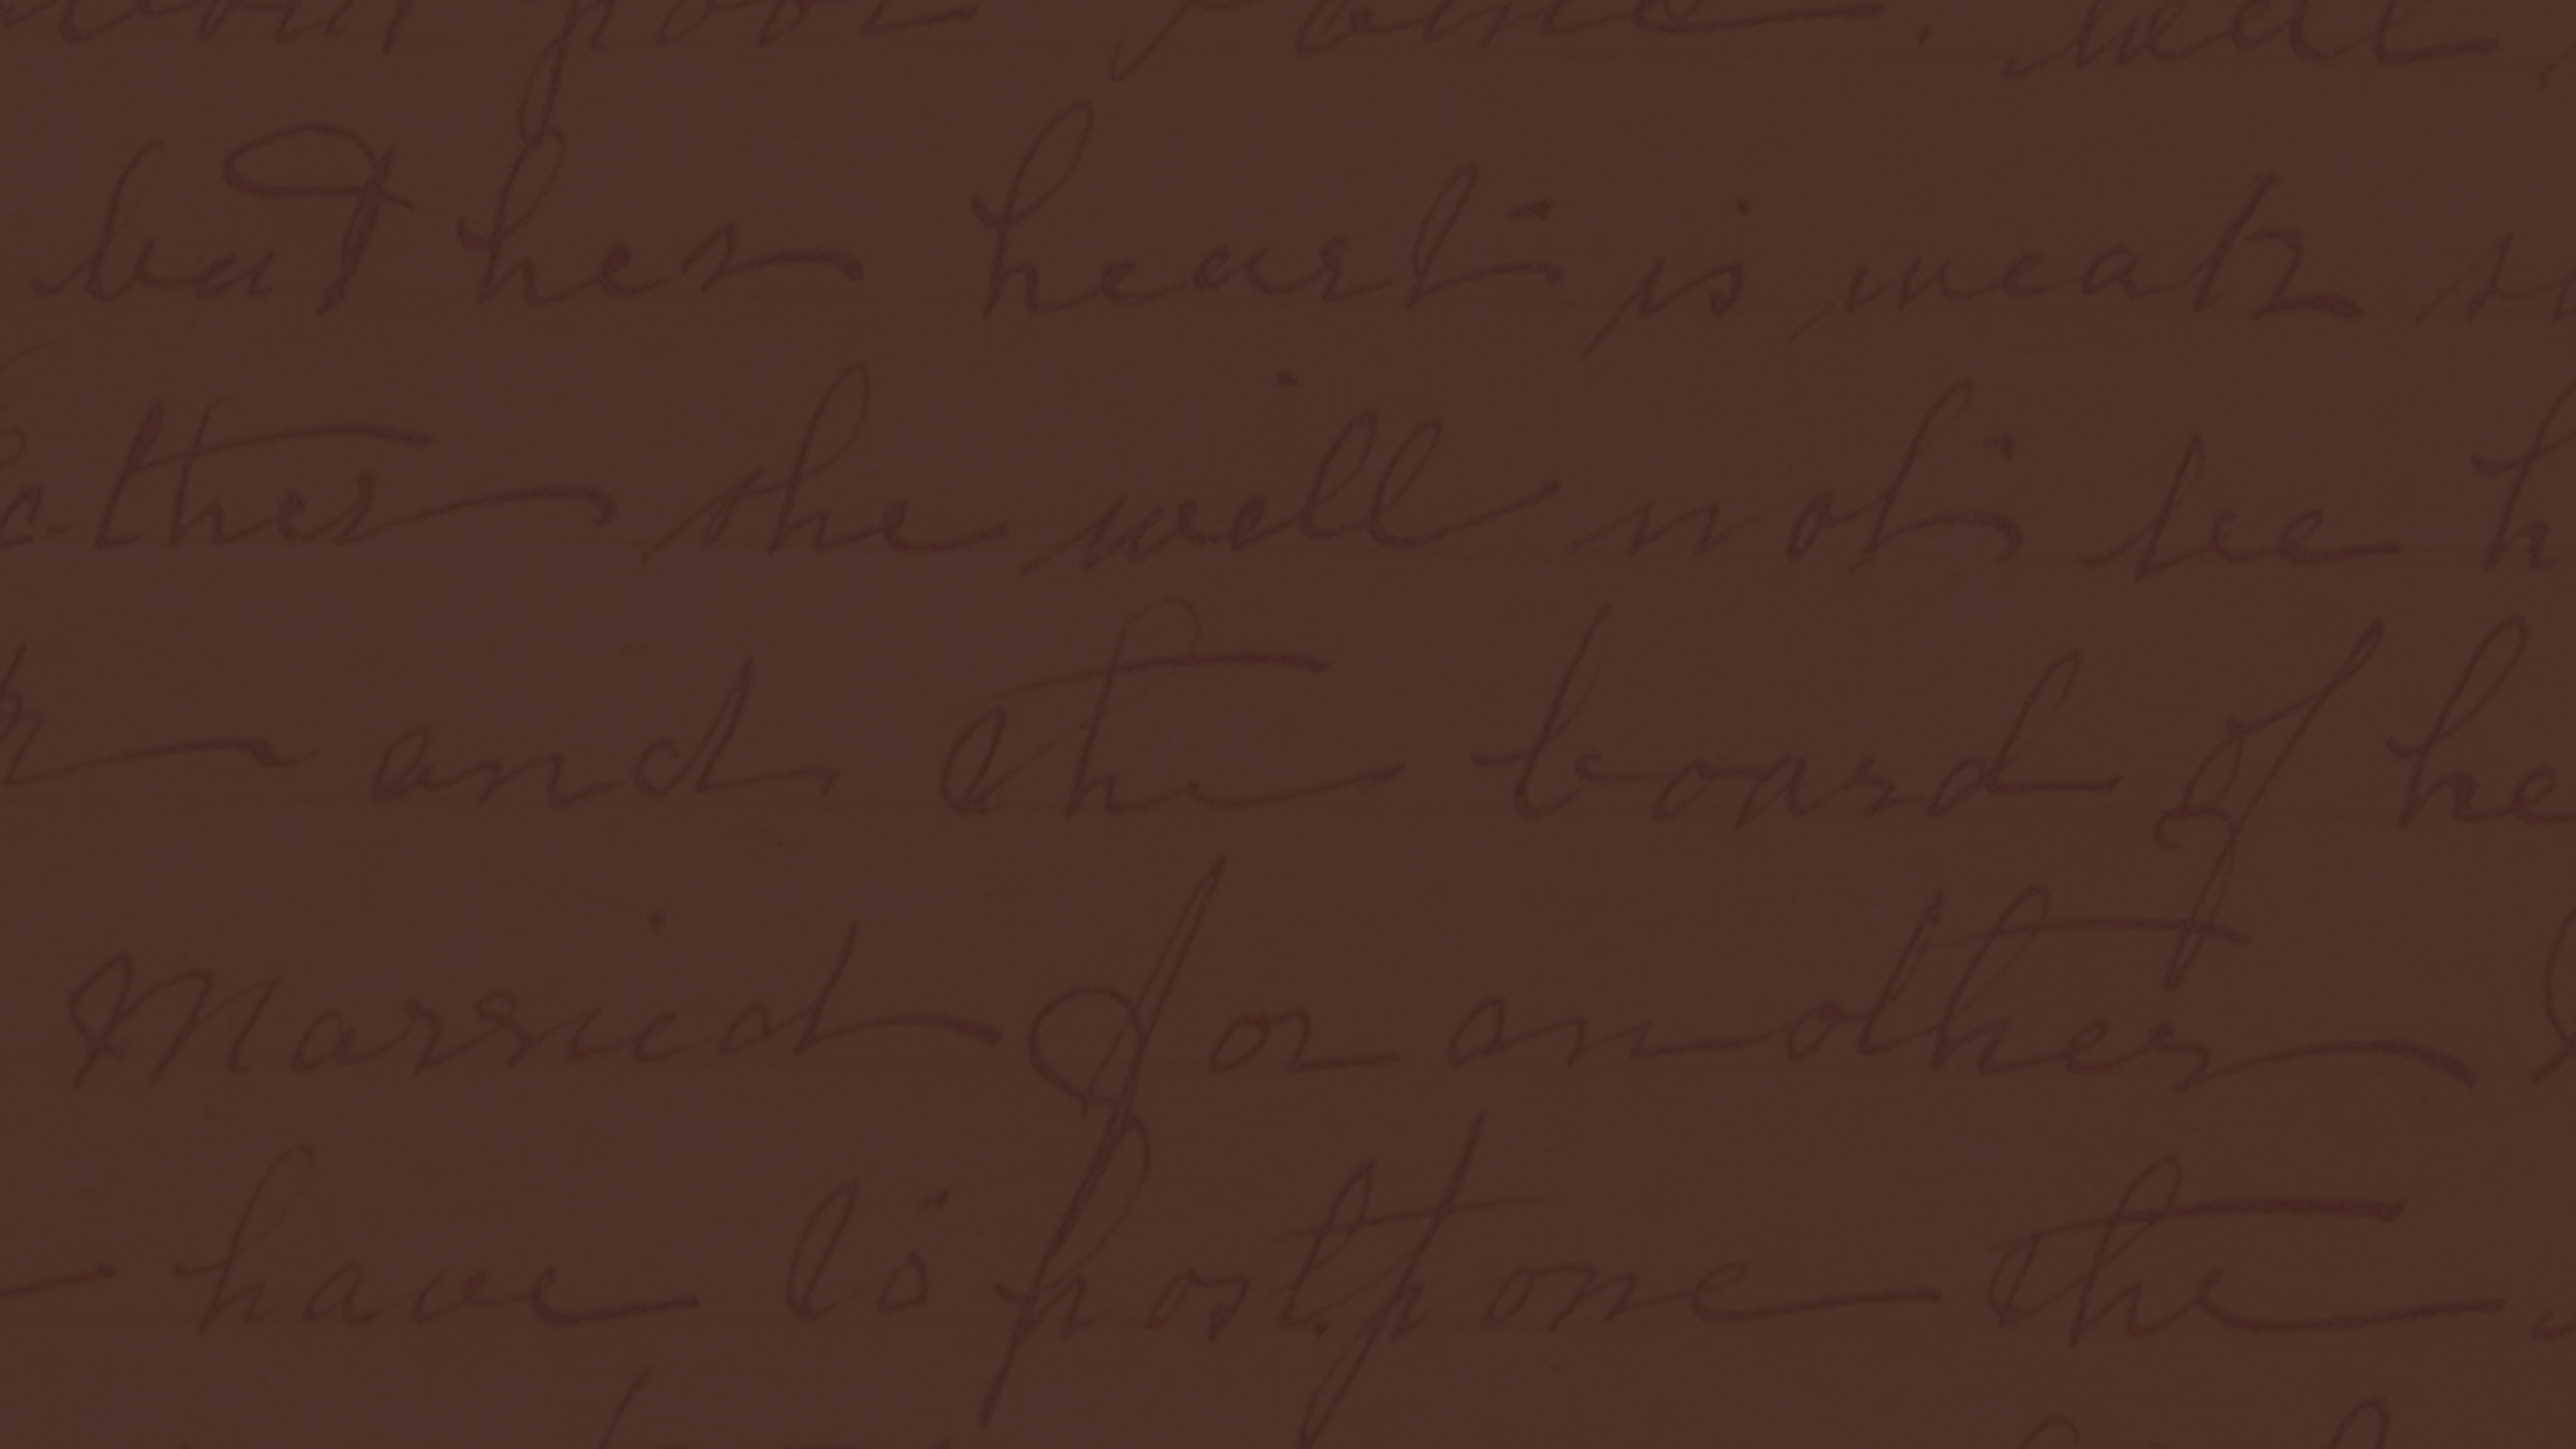 well
but her heart is weak
ther she will not be
and the board of he
Married for another
have to postpone the